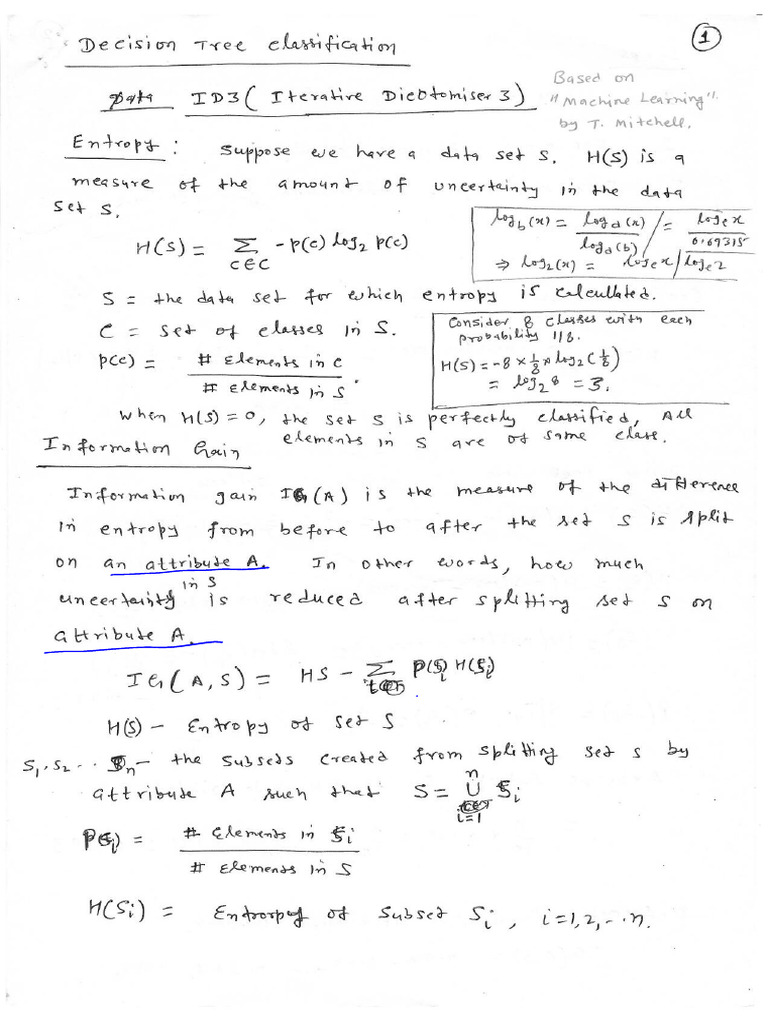 Decision Tree Classification
1
Data ID3 ( Iterative Dichotomiser 3 )
Based on
"Machine Learning".
by T. Mitchell.
Entropy : Suppose we have a data set S. H(S) is a
measure of the amount of uncertainty in the data
set S.
H(S) = Σ -p(c) log₂ p(c)
c∈C
log_b(x) = log_d(x) / log_d(b) = log_e x / 0.69315
⇒ log₂(x) = log_e x / log_e 2
S = the data set for which entropy is calculated.
C = set of classes in S.
p(c) = # Elements in c / # Elements in S
Consider 8 classes with each
probability 1/8.
H(S) = -8 × 1/8 × log₂(1/8)
= log₂ 8 = 3.
When H(S) = 0, the set S is perfectly classified, All
elements in S are of same class.
Information Gain
Information gain IG(A) is the measure of the difference
in entropy from before to after the set S is split
on an attribute A. In other words, how much
uncertainty in S is reduced after splitting set S on
attribute A.
IG(A, S) = HS - Σ P(Sᵢ) H(Sᵢ)
H(S) - Entropy of set S
S₁, S₂ .. Sₙ - the subsets created from splitting set S by
attribute A such that S = ∪ Sᵢ
n
i=1
P(Sᵢ) = # Elements in Sᵢ / # Elements in S
H(Sᵢ) = Entrorpy of subset Sᵢ, i = 1, 2, ... n.